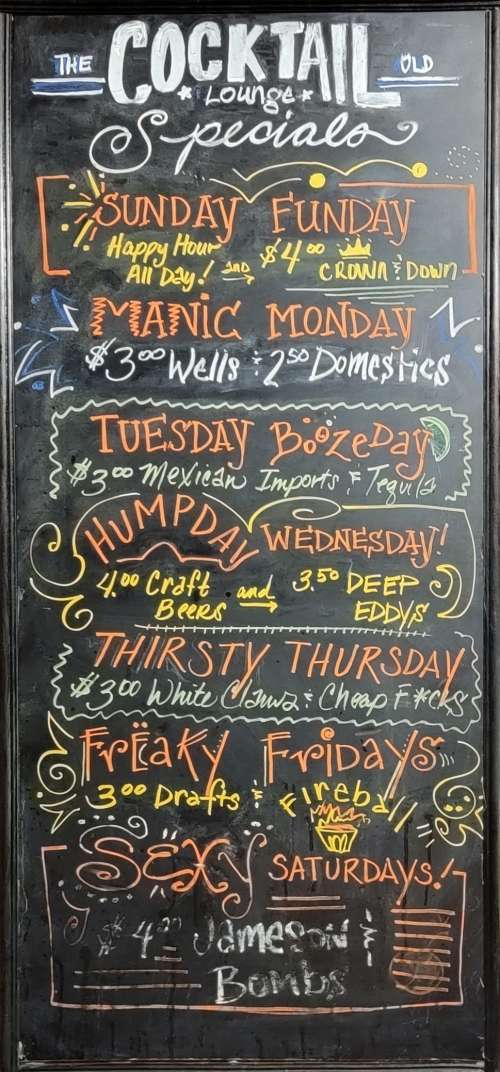 THE COCKTAIL OLD
* Lounge *
Specials
SUNDAY FUNDAY
Happy Hour $4.00
All Day! and CROWN & DOWN
MANiC MONDAY
$3.00 Wells & 2.50 Domestics
TUESDAY BoozeDay
$3.00 Mexican Imports & Tequila
HUMPDAY WEDNESDAY!
4.00 Craft and 3.50 DEEP
BeeRs EDDYS
THIRSTY THURSDAY
$3.00 White Claws & Cheap F*cks
FrËaky FridAYS
3.00 Drafts & Fireball
SËXy SATURDAYS!
$4.00 Jameson
Bombs